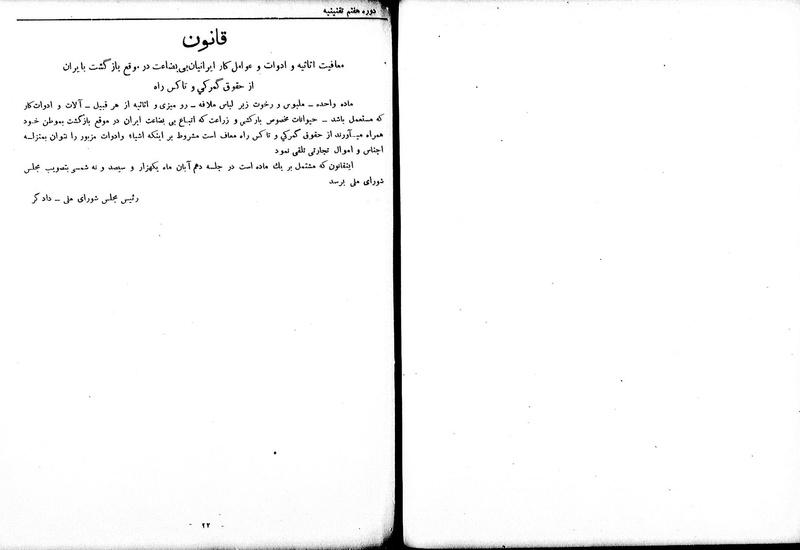 دوره هفتم تقنینیه
قانون
معافیت اثاثیه و ادوات و عوامل کار ایرانیان بی بضاعت در موقع بازگشت بایران
از حقوق گمرکی و تاکس راه
ماده واحده ـ ملبوس و رخوت زیر لباس ملافه ـ رو میزی و اثاثیه از هر قبیل ـ آلات و ادوات کار
که مستعمل باشد ـ حیوانات مخصوص بارکشی و زراعت که اتباع بی بضاعت ایران در موقع بازگشت بموطن خود
همراه میـآورند از حقوق گمرکی و تاکس راه معاف است مشروط بر اینکه اشیاء وادوات مزبور را نتوان بمنزلـه
اجناس و اموال تجارتی تلقی نمود
اینقانون که مشتمل بر یك ماده است در جلسه دهم آبان ماه یکهزار و سیصد و نه شمسی بتصویب مجلس
شورای ملی برسد
رئیس مجلس شورای ملی ـ دادگر
- ۲۲ -